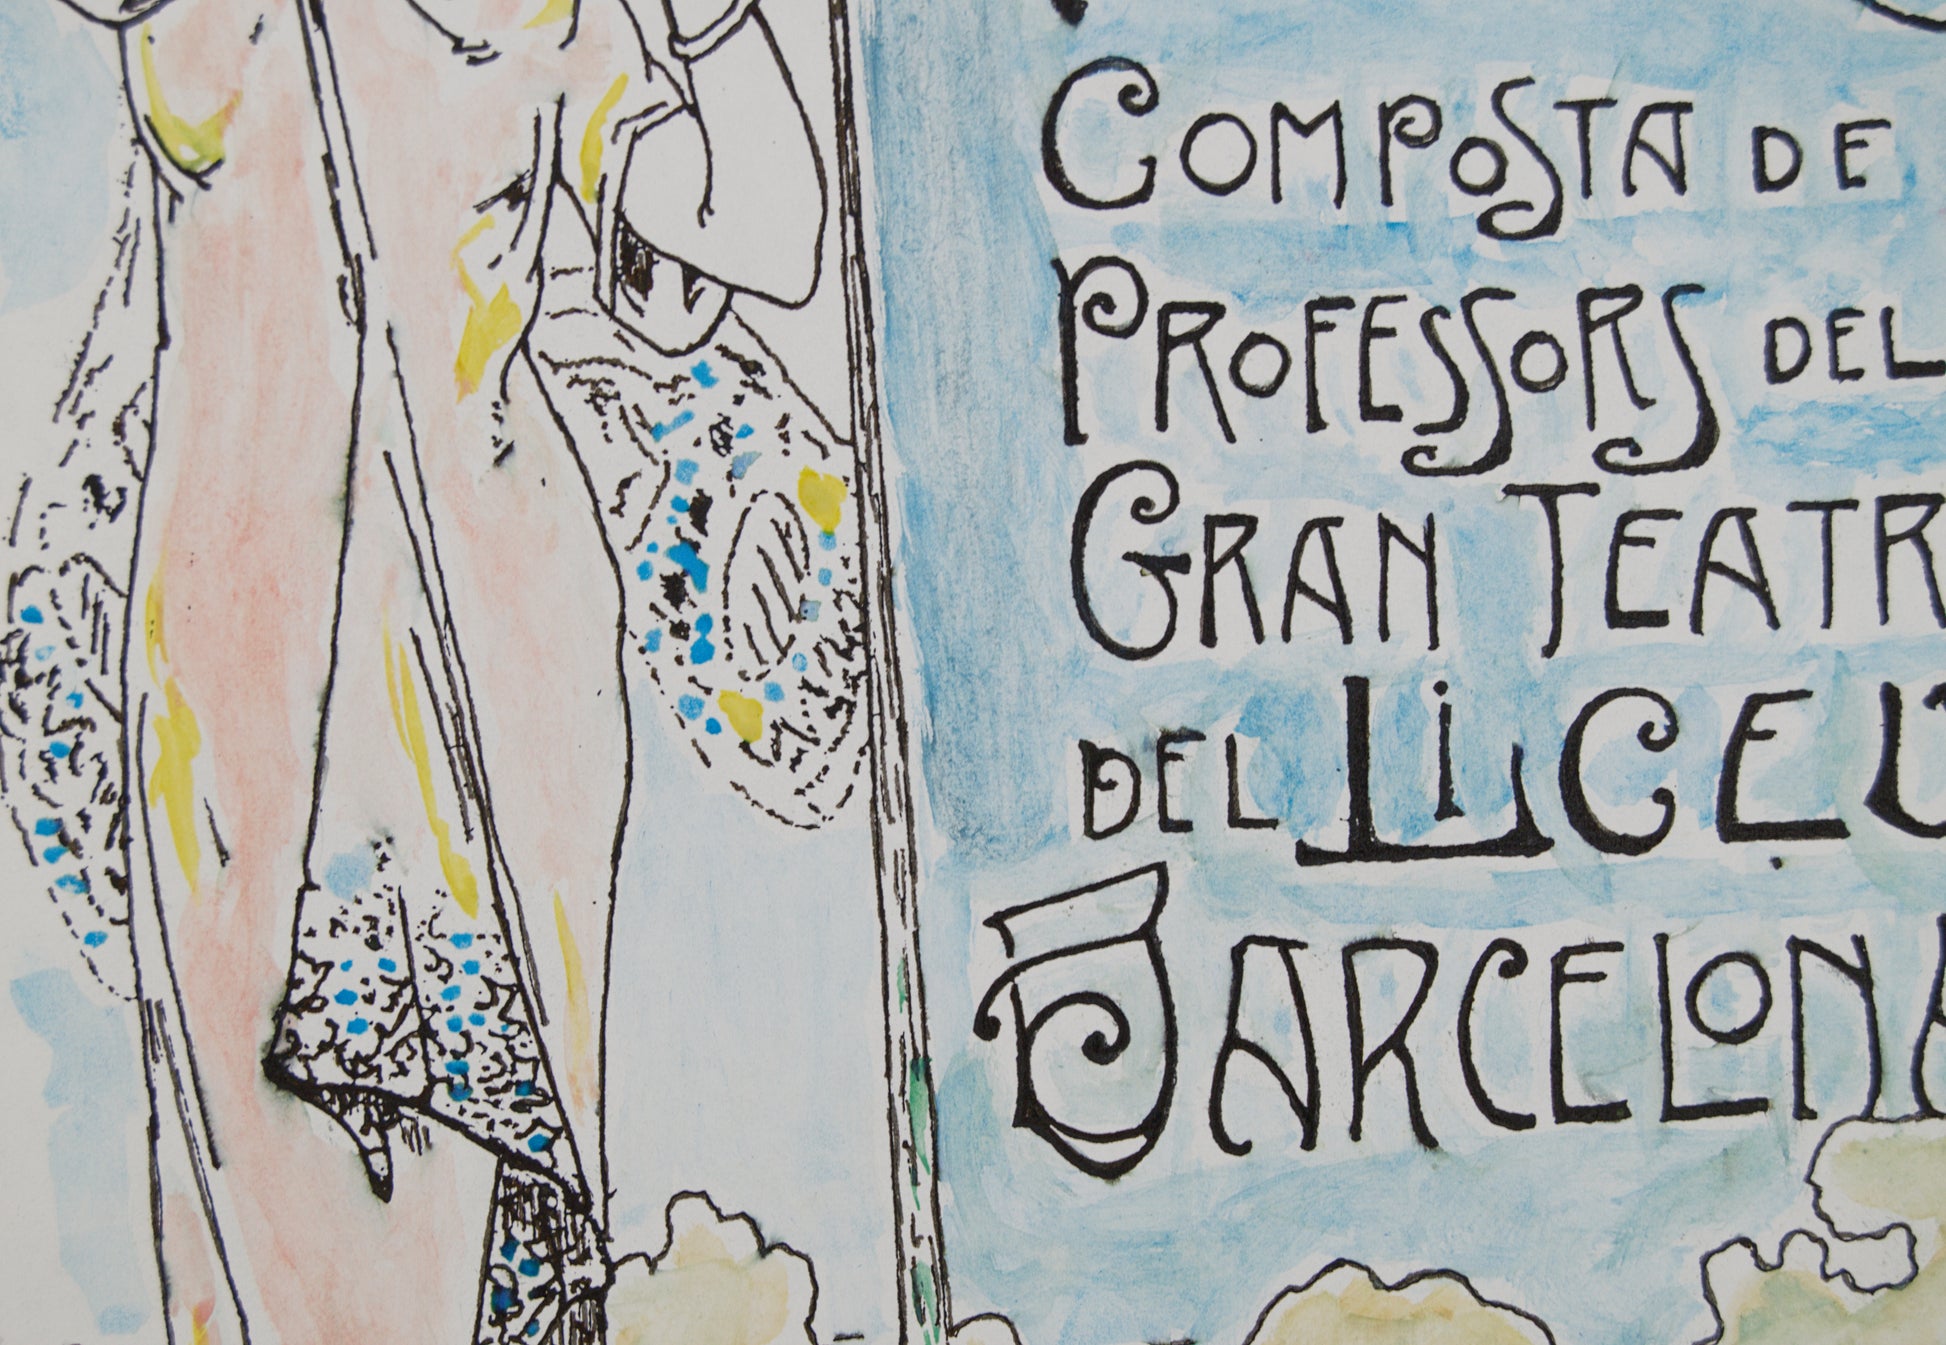 COMPOSTA DE
PROFESSORS DEL
GRAN TEATR
DEL LiCEU
BARCELONA